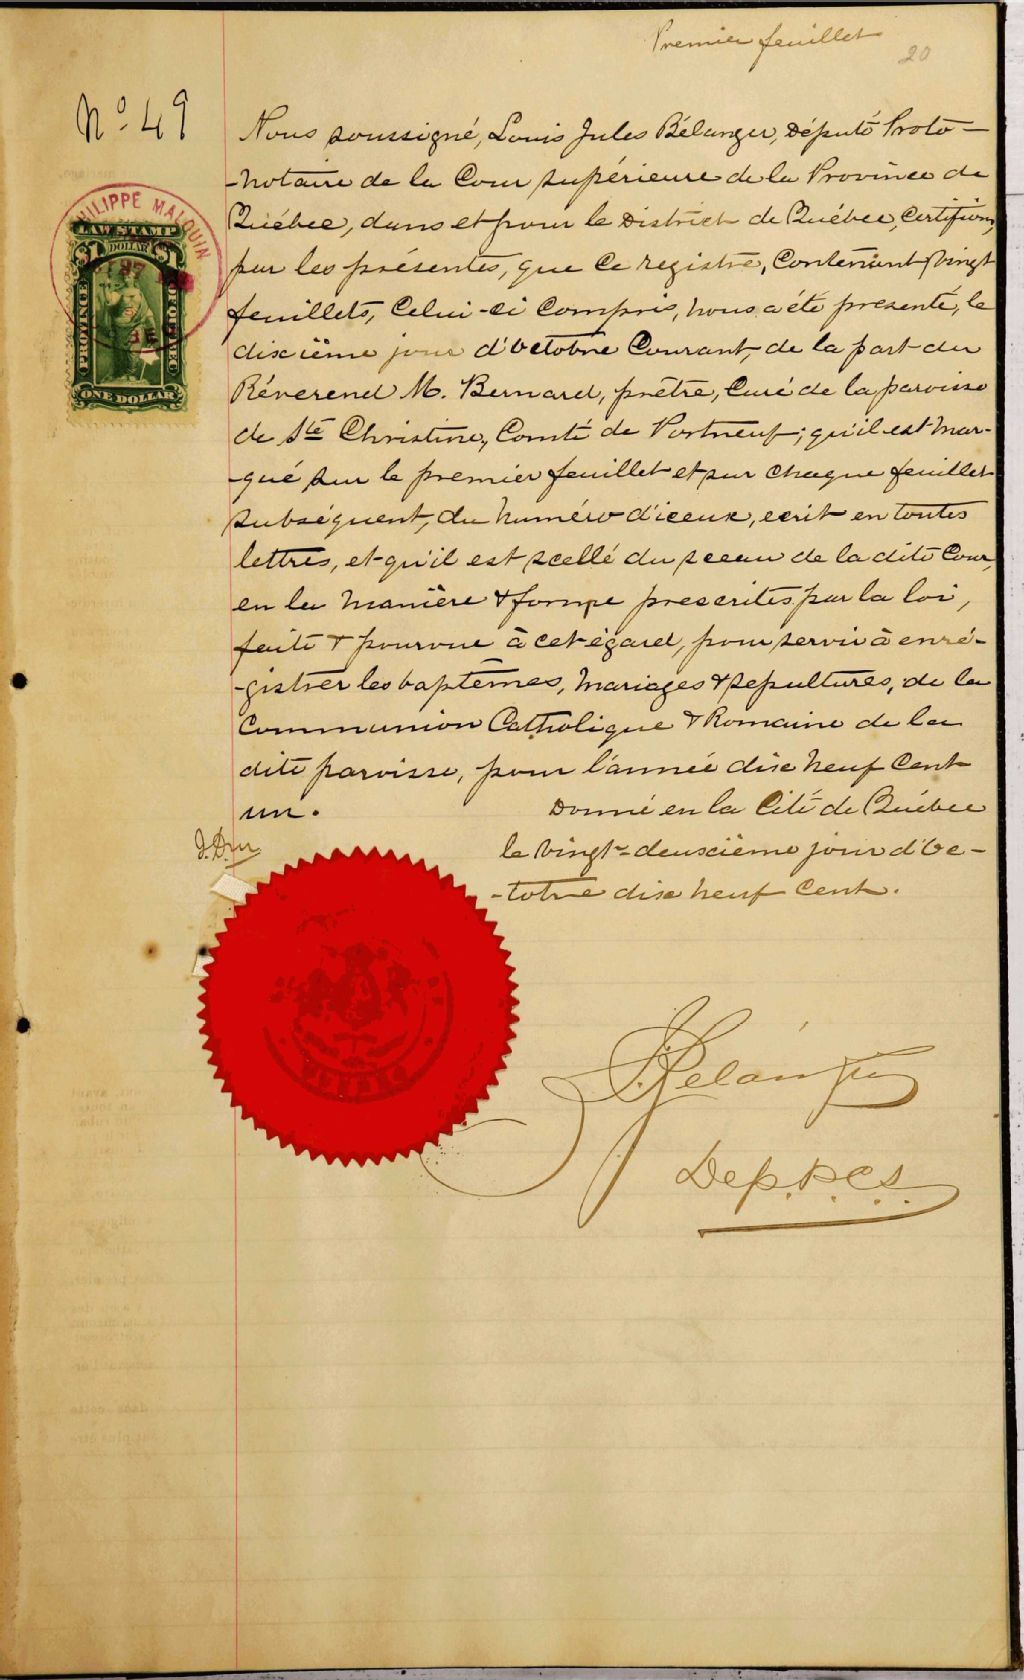 Premier feuillet
20
No. 49
Nous soussigné, Louis Jules Bélanger, Député Proto-
-notaire de la Cour supérieure de la Province de
Québec, dans et pour le District de Québec, Certifions,
par les présentes, que ce registre, contenant vingt
feuillets, Celui-ci Compris, nous a été presenté, le
dixième jour d'Octobre Courant, de la part du
Réverend M. Bernard, prêtre, Curé de la paroisse
de Ste Christine, Comté de Portneuf; qu'il est mar-
-qué sur le premier feuillet et sur chaque feuillet
subséquent, du numéro d'iceux, ecrit en toutes
lettres, et qu'il est scellé du sceau de la dite Cour,
en la manière & forme prescrites par la loi,
faite & pourvue à cet égard, pour servir à enré-
-gistrer les baptêmes, mariages & sepultures, de la
Communion Catholique & Romaine de la
dite paroisse, pour l'année dix neuf Cent
un. Donné en la Cité de Québec
le vingt-deuxième jour d'Oc-
-tobre dix neuf Cent.
PHILIPPE MALOUIN
LAW STAMP
$1 DOLLAR $1
PROVINCE OF QUEBEC
ONE DOLLAR
QUEBEC
J. Bélanger
Dep. P.C.S.